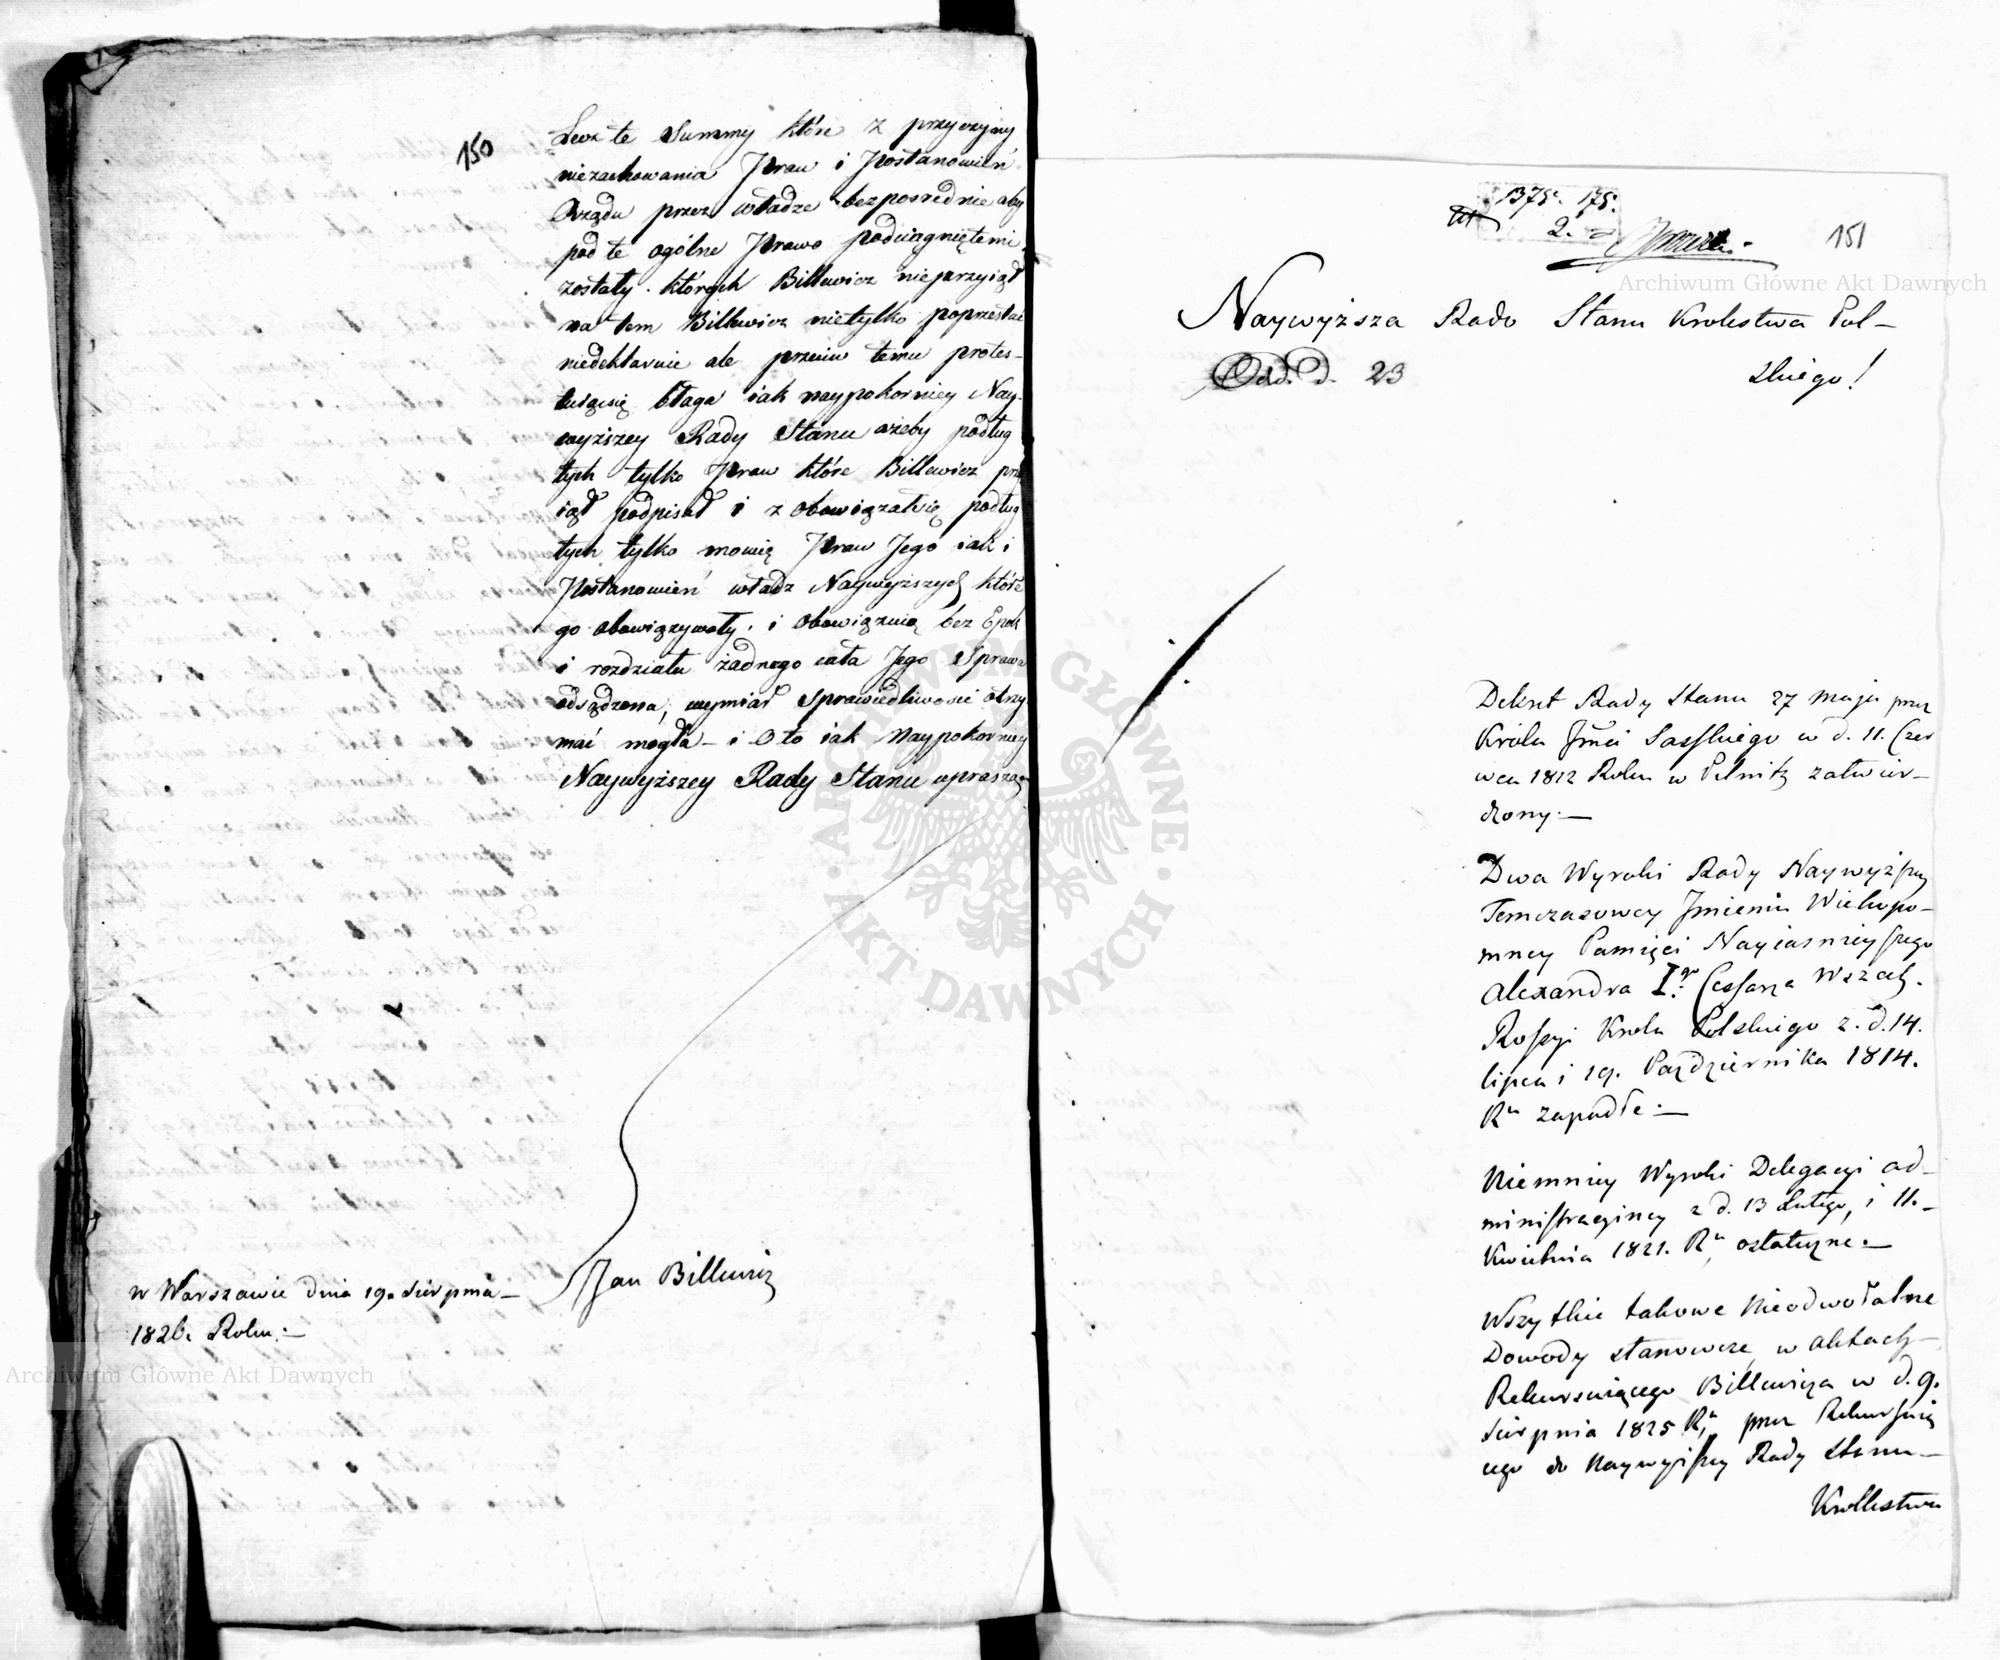 150
Lecz te Summy które z przyczyny
niezachowania Praw i Postanowień
Rządu przez władze bezpośrednie aby
pod te ogólne Prawo podciągniętemi
zostały. których Billewicz nieprzyiął
na tem Billewicz nietylko poprzestać
niedeklaruie ale przeciw temu protes-
tuiąc się błaga iak naypokorniey Nay-
wyższey Rady Stanu ażeby podług
tych tylko Praw które Billewicz przy
iął podpisał i zobowiązał się podług
tych tylko mowię Praw Jego iak i
Postanowień władz Naywyższych które
go obowiązywały. i obowiązuią bez Epok
i rozdziału żadnego cała Jego Sprawa
odsądzona, wymiar Sprawiedliwości otrzy
mać mogła – i o to iak naypokorniey
Naywyższey Rady Stanu uprasza
Jan Billewicz
w Warszawie dnia 19. Sierpnia –
1826. Roku. –
1375. 175.
2.
151
Naywyższa Rado Stanu Krolestwa Pol–
skiego!
Odd. D. 23
Dekret Rady Stanu 27 Maja przez
Króla Jmći Saskiego w d. 11. Czer
wca 1812 Roku w Pilnitz zatwier–
dzony. –
Dwa Wyroki Rady Naywyższey
Temczasowey Jmieniu Wiekopo–
mney Pamięci Nayiaśnieyszego
Alexandra Igo. Cesarza Wszech.
Rossyi Krola Polskiego z. d. 14.
lipca i 19. Października 1814.
Ru zapadłe. –
Niemniey Wyroki Delegacyi ad–
ministracyiney z d. 13 Lutego, i 11. –
Kwietnia 1821. Ru ostateczne. –
Wszytkie takowe Nieodwołalne
Dowody stanowcze, w Aktach –
Rekursuiącego Billewicza w d. 9.
Sierpnia 1825 Ru przez Rekursuią
cego do Naywyższey Rady Stanu –
Krollestwa
Archiwum Główne Akt Dawnych
Archiwum Główne Akt Dawnych
ARCHIWUM GŁÓWNE
AKT DAWNYCH